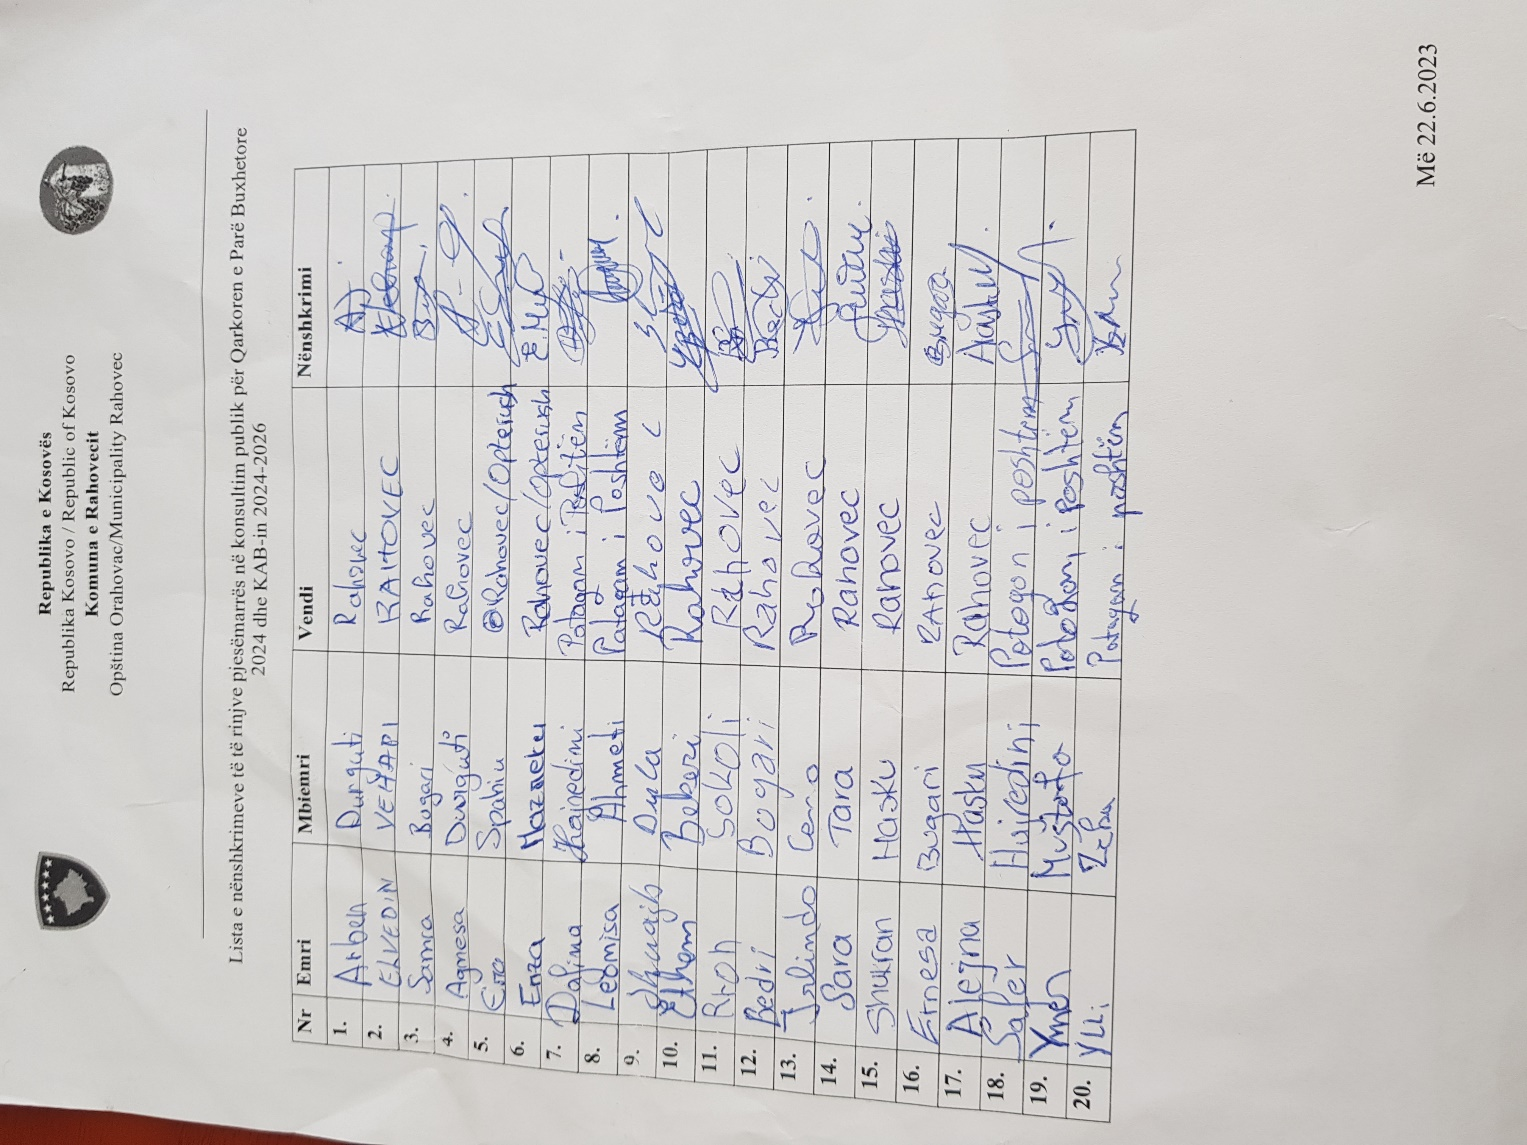 Republika e Kosovës
Republika Kosovo / Republic of Kosovo
Komuna e Rahovecit
Opština Orahovac/Municipality Rahovec
Lista e nënshkrimeve të të rinjve pjesëmarrës në konsultim publik për Qarkoren e Parë Buxhetore
2024 dhe KAB-in 2024-2026
Nr Emri Mbiemri Vendi Nënshkrimi
1. Arben Durguti Rahovec
2. ELVEDIN VEHAPI RAHOVEC
3. Samra Bugari Rahovec
4. Agnesa Durguti Rahovec
5. Spahiu Rahovec/Opterush
6. Enza Mazreku Rahovec/Opterush E.M
7. Dafina Hajredini
8. Leonisa Ahmeti Patagam i Poshtëm
9. Dula Rahovec
10. Ethem Bekeri Rahovec
11. Rron SOKOLI Rahovec
12. Bedri Bogari Rahovec
13. Jalindo Cena Rahovec
14. Sara Tara Rahovec
15. Shukran Hasku Rahovec
16. Ernesa Bugari RAHovec
17. Alejna Hasku Rahovec
18. Safer Hajredini Potogon i poshtëm
19. Ymer Mustafa Potogon i Poshtëm
20. YLLi Zeka Potagan i poshtëm
Më 22.6.2023